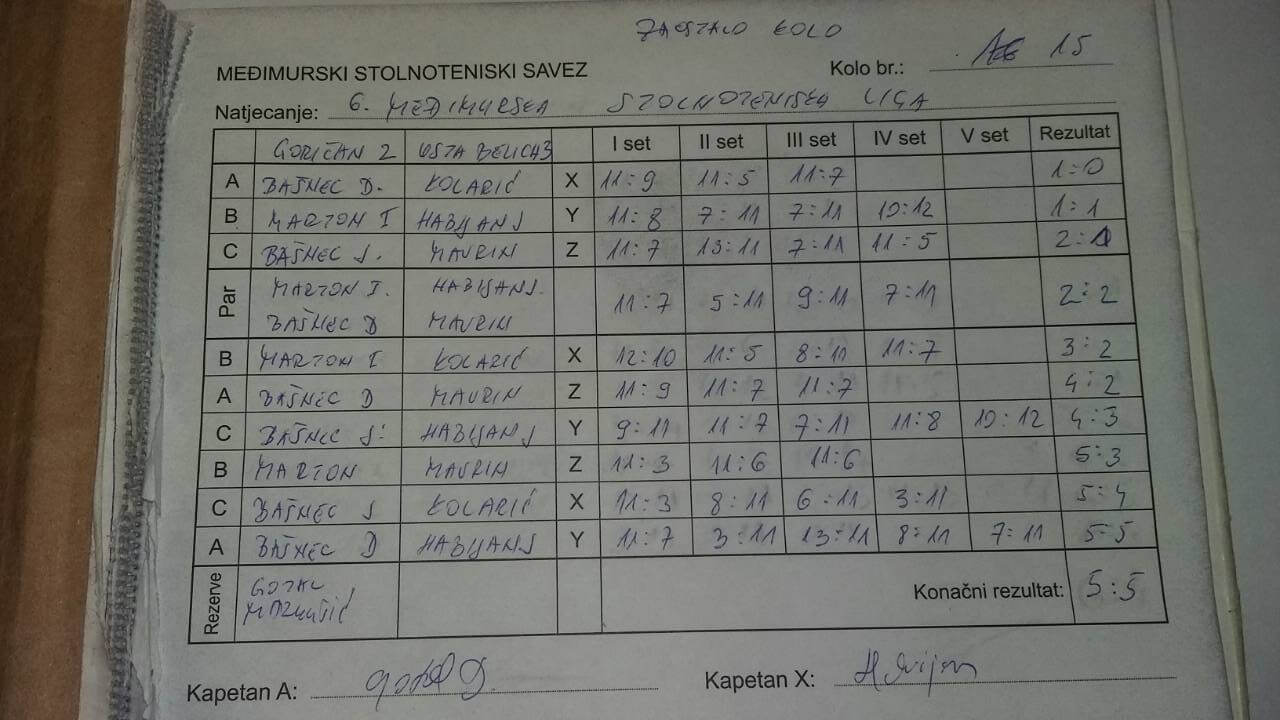 ZAOSTALO KOLO
MEĐIMURSKI STOLNOTENISKI SAVEZ Kolo br.: 15
Natjecanje: 6. MEĐIMURSKA STOLNOTENISKA LIGA
GORIČAN 2 USTA BELICA 3 I set II set III set IV set V set Rezultat
A BAŠNEC D. KOLARIĆ X 11:9 11:5 11:7 1:0
B MARTON I HABIJAN J Y 11:8 7:11 7:11 10:12 1:1
C BAŠNEC J. MAVRIN Z 11:7 13:11 7:11 11:5 2:1
Par MARTON I. HABIJAN J. 11:7 5:11 9:11 7:11 2:2
BAŠNEC D MAVRIN
B MARTON I KOLARIĆ X 12:10 11:5 8:11 11:7 3:2
A BAŠNEC D MAVRIN Z 11:9 11:7 11:7 4:2
C BAŠNEC J. HABIJAN J Y 9:11 11:7 7:11 11:8 10:12 4:3
B MARTON MAVRIN Z 11:3 11:6 11:6 5:3
C BAŠNEC J KOLARIĆ X 11:3 8:11 6:11 3:11 5:4
A BAŠNEC D HABIJAN J Y 11:7 3:11 13:11 8:11 7:11 5:5
Rezerve Konačni rezultat: 5:5
Kapetan A: Kapetan X: